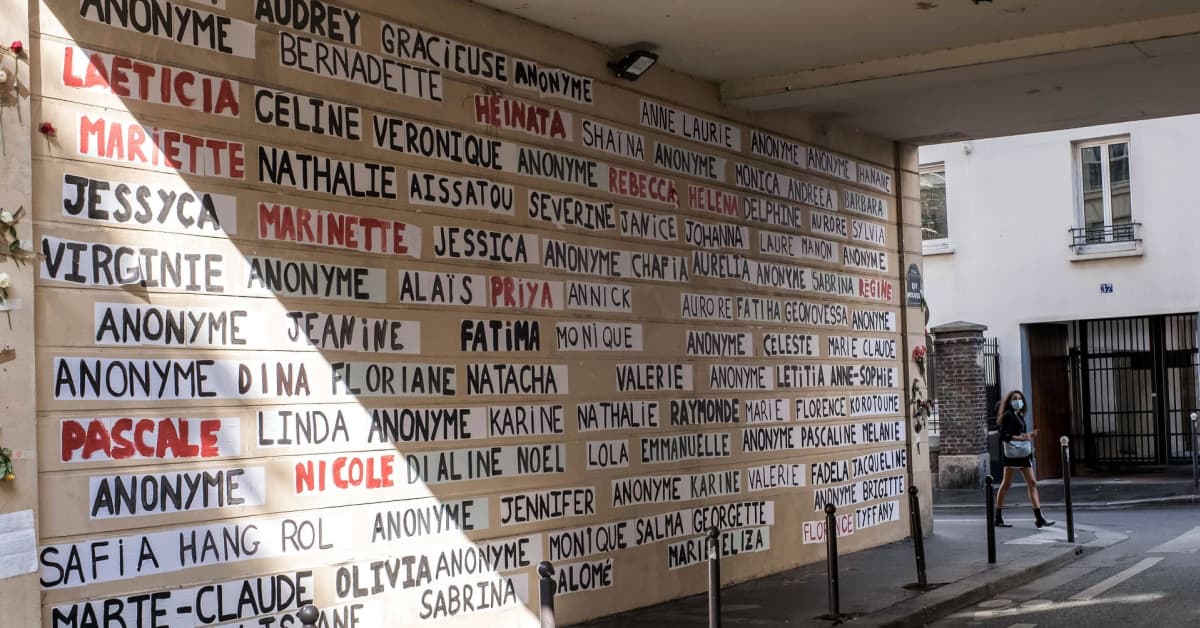 ANONYME AUDREY GRACIEUSE ANONYME
BERNADETTE
LAETICIA CELINE VERONIQUE HEINATA SHAÏNA ANNE LAURIE ANONYME ANONYME HANANE
MARIETTE NATHALIE AISSATOU ANONYME REBECCA HELENA ANONYME MONICA ANDREEA BARBARA
JESSYCA MARINETTE JESSICA SEVERINE JANICE JOHANNA DELPHINE AURORE SYLVIA
VIRGINIE ANONYME ALAÏS PRIYA ANNICK ANONYME CHAFIA AURELIA LAURE MANON ANONYME
ANONYME SABRINA REGINE
ANONYME JEANINE FATIMA MONIQUE AURORE FATIHA GEONOVESSA ANONYME
ANONYME CELESTE MARIE CLAUDE
ANONYME DINA FLORIANE NATACHA VALERIE ANONYME LETITIA ANNE-SOPHIE
PASCALE LINDA ANONYME KARINE NATHALIE RAYMONDE MARIE FLORENCE KOROTOUME
ANONYME NICOLE DIALINE NOEL LOLA EMMANUELLE ANONYME PASCALINE MELANIE
SAFIA HANG ROL ANONYME JENNIFER ANONYME KARINE VALERIE FADELA JACQUELINE
ANONYME BRIGITTE
MARTE-CLAUDE OLIVIA ANONYME MONIQUE SALMA GEORGETTE FLORENCE TYFFANY
SABRINA SALOMÉ ELIZA
37